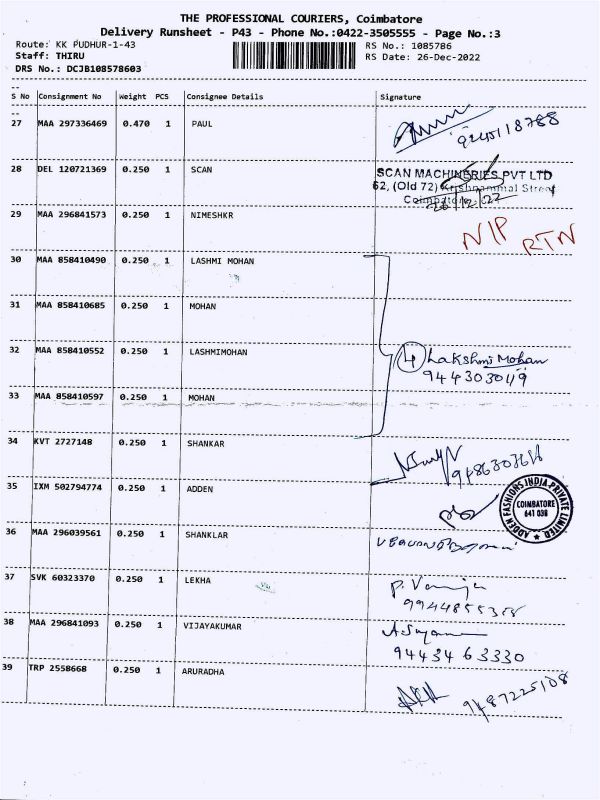 THE PROFESSIONAL COURIERS, Coimbatore
Delivery Runsheet - P43 - Phone No.:0422-3505555 - Page No.:3
Route: KK PUDHUR-1-43 RS No.: 1085786
Staff: THIRU RS Date: 26-Dec-2022
DRS No.: DCJB108578603
S No Consignment No Weight PCS Consignee Details Signature
27 MAA 297336469 0.470 1 PAUL
28 DEL 120721369 0.250 1 SCAN
SCAN MACHINERIES PVT LTD
62, (Old 72) Krishnammal Street
Coimbatore
26/12/22
29 MAA 296841573 0.250 1 NIMESHKR
N/P RTN
30 MAA 858410490 0.250 1 LASHMI MOHAN
31 MAA 858410685 0.250 1 MOHAN
32 MAA 858410552 0.250 1 LASHMIMOHAN
4 Lakshmi Mohan
33 MAA 858410597 0.250 1 MOHAN
34 KVT 2727148 0.250 1 SHANKAR
35 IXM 502794774 0.250 1 ADDEN
ADDEN FASHIONS INDIA PRIVATE LIMITED
COIMBATORE
641 038
36 MAA 296039561 0.250 1 SHANKLAR
37 SVK 60323370 0.250 1 LEKHA
38 MAA 296841093 0.250 1 VIJAYAKUMAR
9443463330
39 TRP 2558668 0.250 1 ARURADHA
9487225108